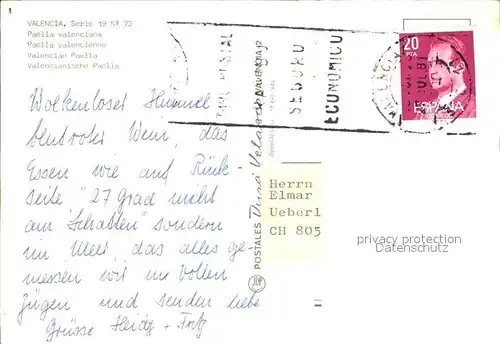 VALENCIA. Serie 19 Nº 93
Paella valenciana
Paella valencienne
Valencian Paella
Valencianische Paella
Wolkenloser Himmel
blutroter Wein, das
Essen wie auf Rück-
seite 27 Grad nicht
am "Schatten" sondern
im Meer, das alles ge-
niessen wir in vollen
Zügen und senden liebe
Grüsse Heidy + Fritz
POSTAL
SEGURO
ECONOMICO
VALENCIA
20
PTA
ESPAÑA
CORREOS
POSTALES
Herrn
Elmar
Ueberl
CH 805
privacy protection
Datenschutz